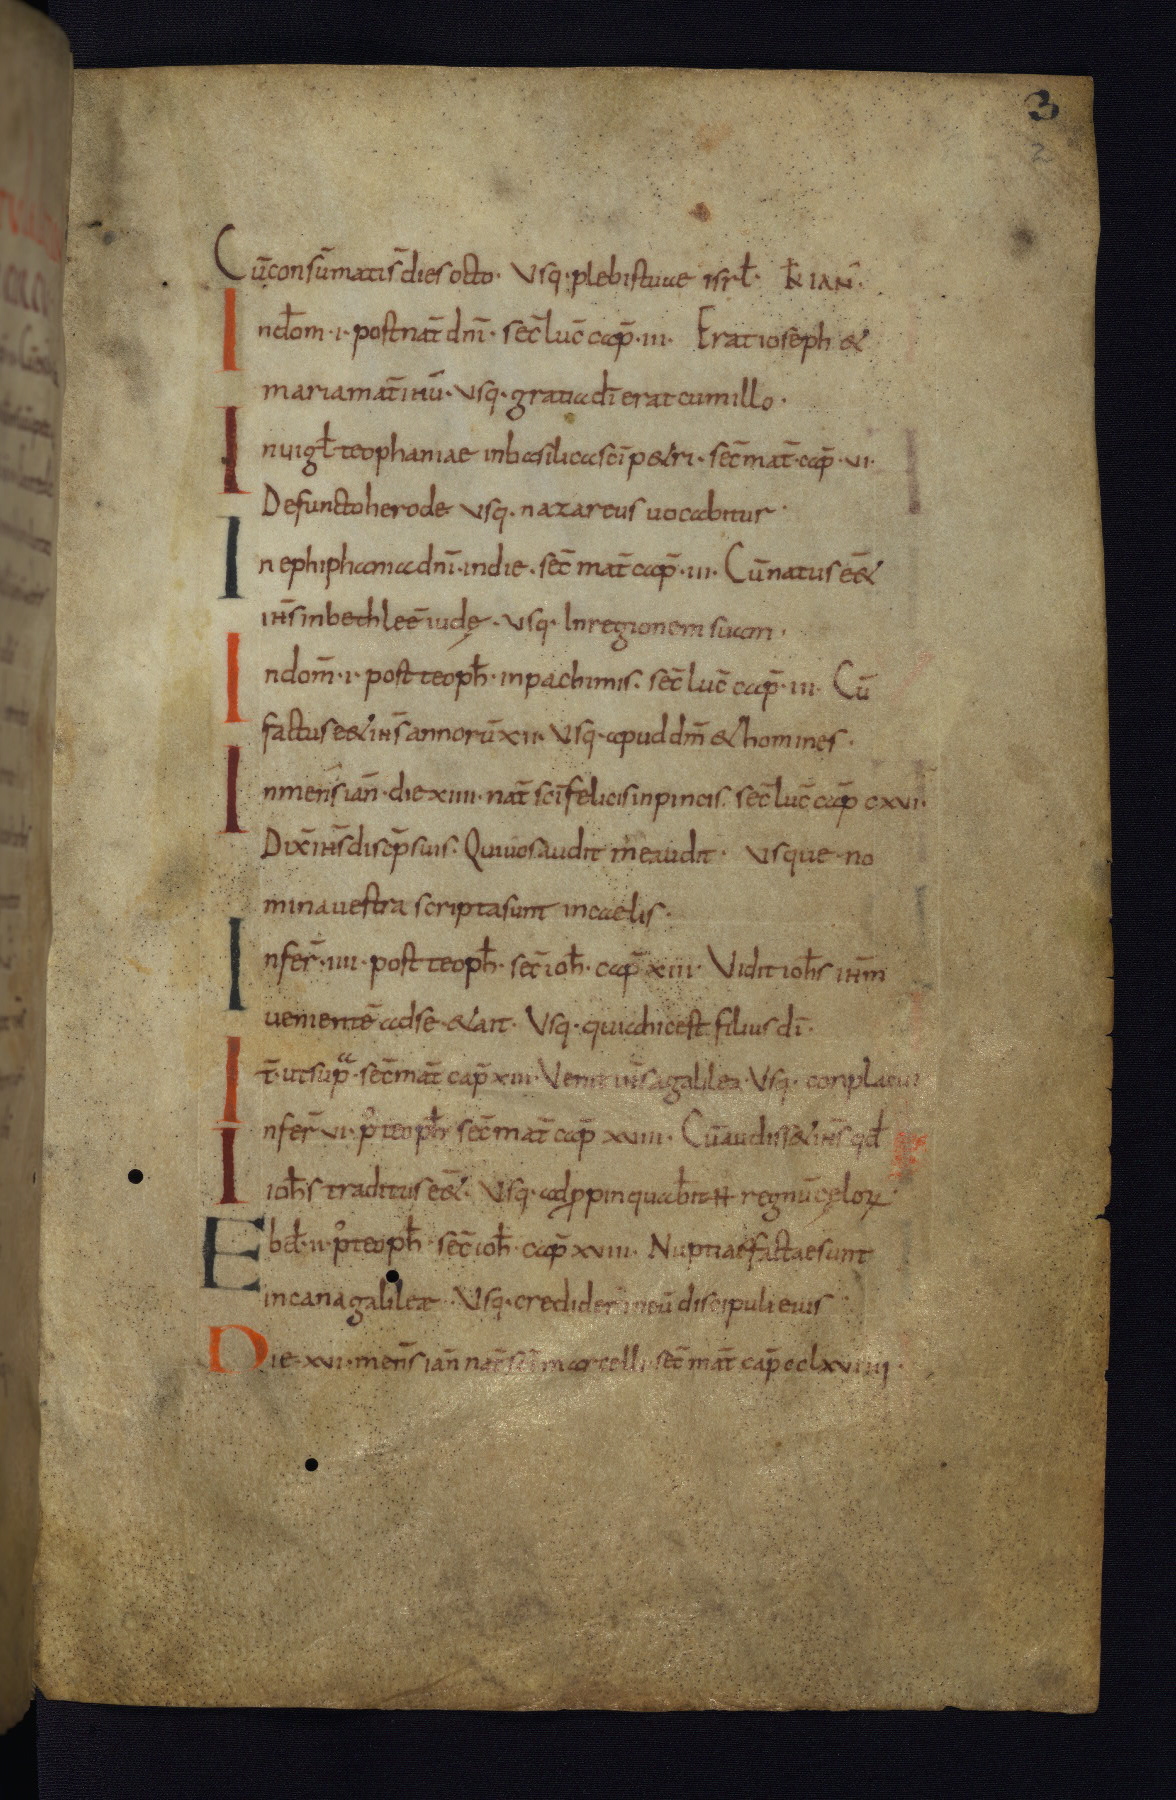 3
2
Cū consūmatis̄ dies octo · Vsq · plebis tuae isrl̄ · k̄ IAN̄ ·
In dom̄ · i · post nat̄ dnī · sec̄ luc̄ cap̄ · iii · Erat ioseph &
maria mat̄ ihū · vsq · gratia dī erat cum illo ·
In uigl̄ teophaniae in basilica scī petri · sec̄ mat̄ cap̄ · vi ·
Defuncto herode vsq · nazareus uocabitur ·
In ephiphania dnī · in die · sec̄ mat̄ cap̄ · iii · Cū natus eē&
ihs̄ in bethleē iudę · vsq · In regionem suam ·
In dom̄ · i · post teoph̄ · in pachimis · sec̄ luc̄ cap̄ · iii · Cū
factus e& ihs̄ annorū xii · Vsq · apud dm̄ & homines ·
In mens̄ ian̄ · die xiiii · nat̄ scī felicis in pincis · sec̄ luc̄ cap̄ cxvi ·
Dix̄ ihs̄ discip̄ suis · Qui uos audit me audit · vsque no
mina uestra scripta sunt in caelis ·
In fer̄ · iiii · post teoph̄ · sec̄ ioh̄ · cap̄ xiii · Vidit ioh̄s ihm̄
uenientē ad se · & ait · Vsq · quia hic est filius dī ·
It̄ · ut sup̄a · sec̄ mat̄ cap̄ xiii · Venit ihs̄ a galilea · Vsq · conplacui
In fer̄ vi · p̊ teoph̄ sec̄ mat̄ cap̄ xviii · Cū audiss& ihs̄ qd̄
ioh̄s traditus eē& · Vsq · adp̱pinquabit n̄ regnū cęloꝝ ·
Ebd̄ · ii · p̊ teoph̄ · sec̄ ioh̄ · cap̄ xviii · Nuptiae factae sunt
in cana galileae · Vsq · crediderūt in eū discipuli eius
Die · xvi · mens̄ ian̄ nat̄ scī marcelli · sec̄ mat̄ cap̄ cclxviiii ·